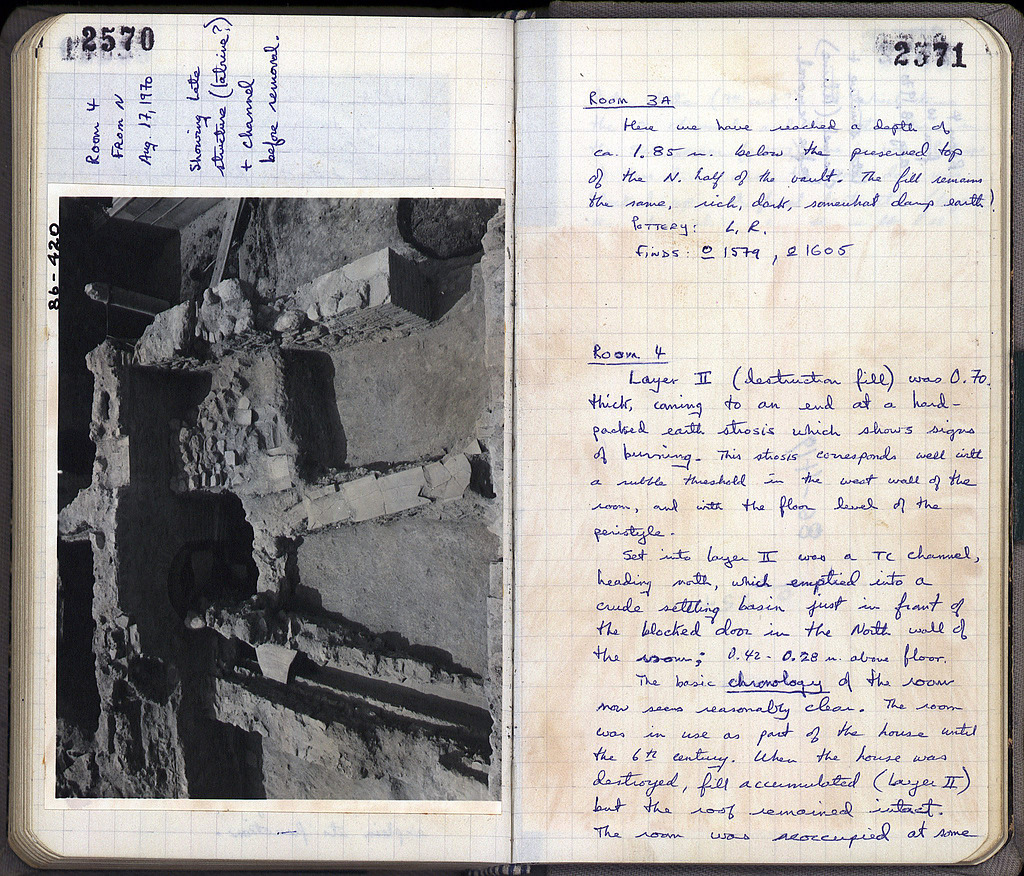 2570
Room 4
From N
Aug. 17, 1970
Showing Late
structure (latrine?)
+ channel
before removal.
86-420
2571
Room 3A
Here we have reached a depth of
ca. 1.85 m. below the preserved top
of the N. half of the vault. The fill remains
the same, rich, dark, somewhat damp earth!
Pottery: L. R.
Finds: 1579, 1605
Room 4
Layer II (destruction fill) was 0.70
thick, coming to an end at a hard-
packed earth strosis which shows signs
of burning. This strosis corresponds well with
a rubble threshold in the west wall of the
room, and with the floor level of the
peristyle.
Set into layer II was a TC channel,
heading north, which emptied into a
crude settling basin just in front of
the blocked door in the North wall of
the room; 0.42-0.28 m. above floor.
The basic chronology of the room
now seems reasonably clear. The room
was in use as part of the house until
the 6th century. When the house was
destroyed, fill accumulated (Layer II)
but the roof remained intact.
The room was reoccupied at some